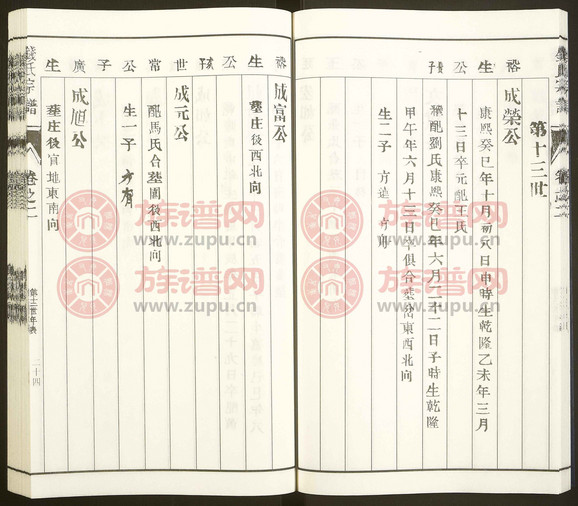 第十三世
裕生公長子
成榮公
康熙癸巳年十月初八日申時生乾隆乙未年三月
十三日卒元配王氏
繼配劉氏康熙癸巳年六月二十二日子時生乾隆
甲午年六月十三日卒俱合塟崗東西北向
生一子
裕生公次子
成富公
塟庄後西北向
世常公子
成元公
配馬氏合塟園後西北向
生一子 方有
廣生
成旭公
塟庄後官地東南向
錢氏宗譜
卷之二
第十三世年表
二十四
族谱网
www.zupu.cn
族谱网
www.zupu.cn
族谱网
www.zupu.cn
族谱网
www.zupu.cn